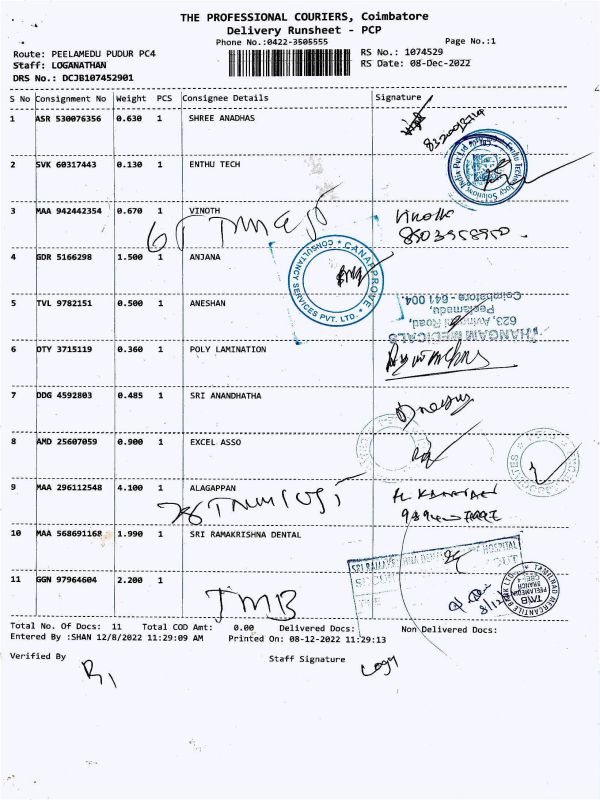 THE PROFESSIONAL COURIERS, Coimbatore
Delivery Runsheet - PCP
Phone No.:0422-3505555
Page No.:1
Route: PEELAMEDU PUDUR PC4
RS No.: 1074529
Staff: LOGANATHAN
RS Date: 08-Dec-2022
DRS No.: DCJB107452901
S No Consignment No Weight PCS Consignee Details Signature
1 ASR 530076356 0.630 1 SHREE ANADHAS
2 SVK 60317443 0.130 1 ENTHU TECH
Enthu Technology Solutions India Pvt Ltd
3 MAA 942442354 0.670 1 VINOTH
Vinoth
4 GDR 5166298 1.500 1 ANJANA
CANAPPROVE CONSULTANCY SERVICES PVT. LTD.
5 TVL 9782151 0.500 1 ANESHAN
THANGAM MEDICALS
623, Avinashi Road,
Peelamedu,
Coimbatore - 641 004.
6 OTY 3715119 0.360 1 POLY LAMINATION
7 DDG 4592803 0.485 1 SRI ANANDHATHA
8 AMD 25607059 0.900 1 EXCEL ASSO
9 MAA 296112548 4.100 1 ALAGAPPAN
10 MAA 568691168 1.990 1 SRI RAMAKRISHNA DENTAL
SRI RAMAKRISHNA DENTAL HOSPITAL
11 GGN 97964604 2.200 1
TMB
TAMILNAD MERCANTILE BANK LTD. TMB PEELAMEDU BRANCH
Total No. Of Docs: 11 Total COD Amt: 0.00 Delivered Docs: Non Delivered Docs:
Entered By :SHAN 12/8/2022 11:29:09 AM Printed On: 08-12-2022 11:29:13
Verified By
Staff Signature
Logu